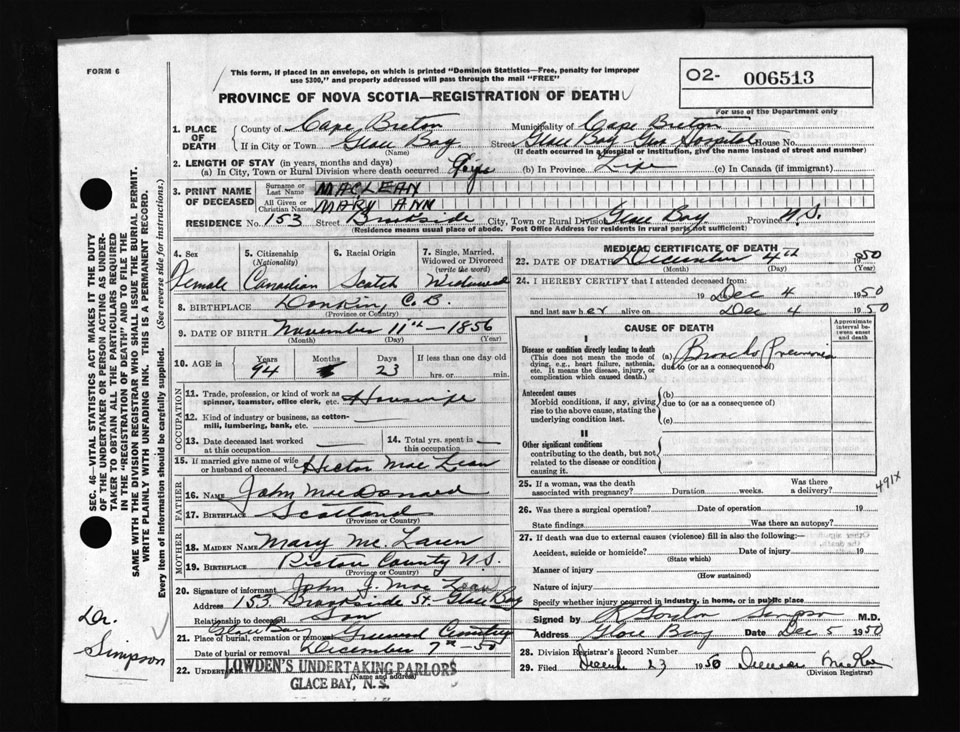 FORM 6
This form, if placed in an envelope, on which is printed "Dominion Statistics—Free, penalty for improper
use $300," and properly addressed will pass through the mail "FREE"
PROVINCE OF NOVA SCOTIA—REGISTRATION OF DEATH
O2- 006513
For use of the Department only
1. PLACE OF DEATH
County of Cape Breton Municipality of Cape Breton
If in City or Town Glace Bay Street Glace Bay Gen Hospital House No.
(Name) (If death occurred in a hospital or institution, give the name instead of street and number)
2. LENGTH OF STAY (in years, months and days)
(a) In City, Town or Rural Division where death occurred (b) In Province Life (c) In Canada (if immigrant)
3. PRINT NAME OF DECEASED
Surname or Last Name MACLEAN
All Given or Christian Names MARY ANN
RESIDENCE No. 153 Street Brookside City, Town or Rural Division Glace Bay Province N.S.
(Residence means usual place of abode. Post Office Address for residents in rural parts not sufficient)
4. Sex Female
5. Citizenship (Nationality) Canadian
6. Racial Origin Scotch
7. Single, Married, Widowed or Divorced (write the word) Widowed
8. BIRTHPLACE Donkin, C.B.
(Province or Country)
9. DATE OF BIRTH November 11th - 1856
(Month) (Day) (Year)
10. AGE in Years 94 Months Days 23 If less than one day old
hrs. or min.
OCCUPATION
11. Trade, profession, or kind of work as
spinner, teamster, office clerk, etc. Housewife
12. Kind of industry or business, as cotton-
mill, lumbering, bank, etc. —
13. Date deceased last worked
at this occupation —
14. Total yrs. spent in
this occupation —
15. If married give name of wife
or husband of deceased Hector MacLean
FATHER
16. NAME John MacDonald
17. BIRTHPLACE Scotland
(Province or Country)
MOTHER
18. MAIDEN NAME Mary McLaren
19. BIRTHPLACE Pictou County N.S.
(Province or Country)
20. Signature of informant John J. MacLean
Address 153 Brookside St. Glace Bay
Relationship to deceased Son
21. Place of burial, cremation or removal Glace Bay Greenwood Cemetery
Date of burial or removal December 7th - 50
22. UNDERTAKER LOWDEN'S UNDERTAKING PARLORS
(Name and address)
GLACE BAY, N. S.
MEDICAL CERTIFICATE OF DEATH
23. DATE OF DEATH December 4th 1950
(Month) (Day) (Year)
24. I HEREBY CERTIFY that I attended deceased from:
19 Dec 4 1950
and last saw her alive on Dec 4 1950
CAUSE OF DEATH
Approximate interval between onset and death
I
Disease or condition directly leading to death
(This does not mean the mode of
dying, e.g., heart failure, asthenia,
etc. It means the disease, injury, or
complication which caused death.)
(a) Broncho Pneumonia
due to (or as a consequence of)
Antecedent causes
Morbid conditions, if any, giving
rise to the above cause, stating the
underlying condition last.
(b)
due to (or as a consequence of)
(c)
II
Other significant conditions
contributing to the death, but not
related to the disease or condition
causing it.
491X
25. If a woman, was the death
associated with pregnancy? Duration weeks. Was there
a delivery?
26. Was there a surgical operation? Date of operation 19
State findings Was there an autopsy?
27. If death was due to external causes (violence) fill in also the following:—
Accident, suicide or homicide? Date of injury 19
(State which)
Manner of injury
(How sustained)
Nature of injury
Specify whether injury occurred in industry, in home, or in public place
Signed by Gordon Simpson M.D.
Address Glace Bay Date Dec 5 1950
28. Division Registrar's Record Number
29. Filed December 23 1950
(Division Registrar)
SEC. 46—VITAL STATISTICS ACT MAKES IT THE DUTY
OF THE UNDERTAKER OR PERSON ACTING AS UNDER-
TAKER TO OBTAIN ALL THE PARTICULARS REQUIRED
IN THE "REGISTRATION OF DEATH" AND TO FILE THE
SAME WITH THE DIVISION REGISTRAR WHO SHALL ISSUE THE BURIAL PERMIT.
WRITE PLAINLY WITH UNFADING INK. THIS IS A PERMANENT RECORD.
Every item of information should be carefully supplied. (See reverse side for instructions.)
Dr.
Simpson